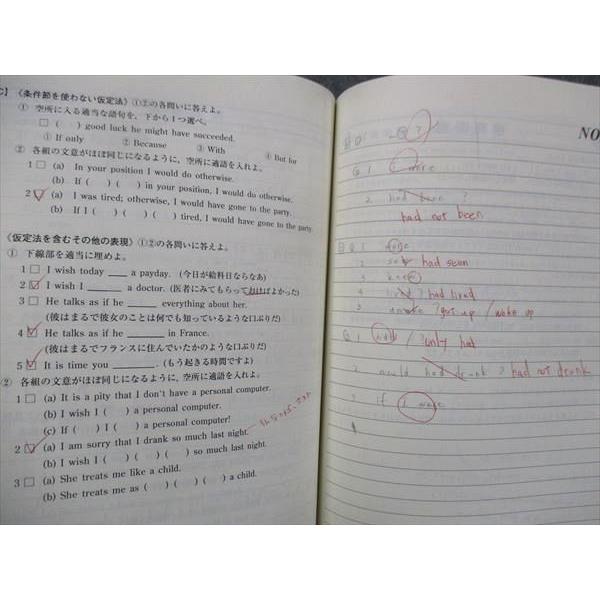 C】《条件節を使わない仮定法》①②の各問いに答えよ。
① 空所に入る適当な語句を、下から1つ選べ。
□ ( ) good luck he might have succeeded.
① If only ② Because ③ With ④ But for
② 各組の文意がほぼ同じになるように、空所に適語を入れよ。
1 □ (a) In your position I would do otherwise.
(b) If ( ) ( ) in your position, I would do otherwise.
2 □ (a) I was tired; otherwise, I would have gone to the party.
(b) If I ( ) ( ) ( ) tired, I would have gone to the party.
《仮定法を含むその他の表現》①②の各問いに答えよ。
① 下線部を適当に埋めよ。
1 □ I wish today ____ a payday. (今日が給料日ならなあ)
2 □ I wish I ____ a doctor. (医者にみてもらっておけばよかった)
3 □ He talks as if he ____ everything about her.
(彼はまるで彼女のことは何でも知っているような口ぶりだ)
4 □ He talks as if he ____ in France.
(彼はまるでフランスに住んでいたかのような口ぶりだ)
5 □ It is time you ____. (もう起きる時間ですよ)
② 各組の文意がほぼ同じになるように、空所に適語を入れよ。
1 □ (a) It is a pity that I don't have a personal computer.
(b) I wish I ( ) a personal computer.
(c) If ( ) I ( ) a personal computer!
2 □ (a) I am sorry that I drank so much last night.
(b) I wish I ( ) ( ) ( ) so much last night.
3 □ (a) She treats me like a child.
(b) She treats me as ( ) ( ) ( ) a child.
NO
1
2 had been ?
had not been
1
2 had seen
3
4 ? had lived
5 ? get up / wake up
1 / ? only had
2 would had drunk ? had not drunk
3 if I were